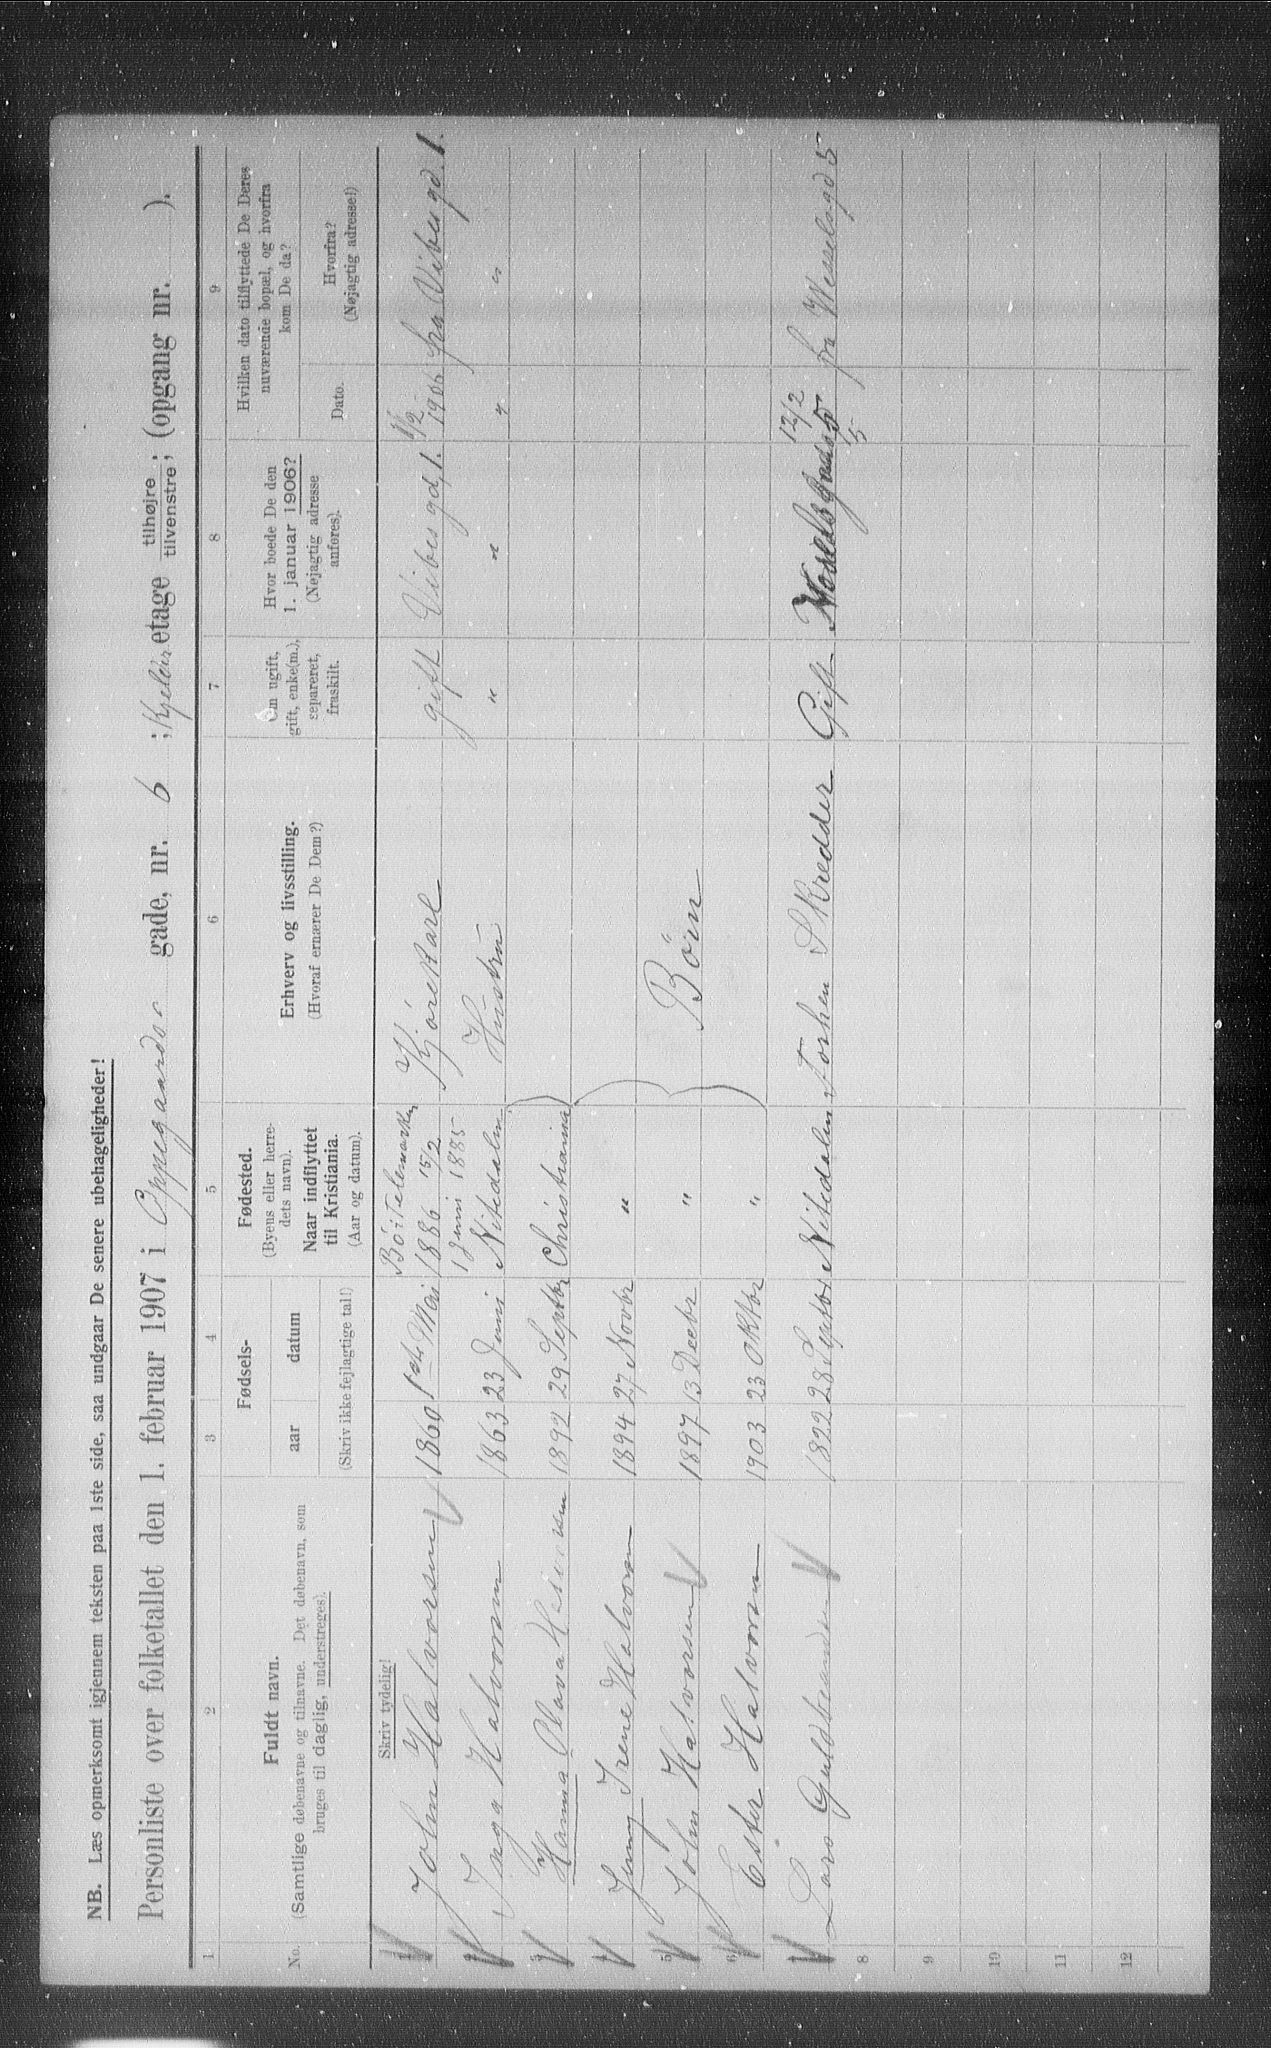 NB. Læs opmerksomt igjennem teksten paa 1ste side, saa undgaar De senere ubehageligheder!
Personliste over folketallet den 1. februar 1907 i Oppegaards gade, nr. 6 ; Kjelder etage tilhøjre tilvenstre ; (opgang nr. ).
1 2 3 4 5 6 7 8 9
No. Fuldt navn. (Samtlige døbenavne og tilnavne. Det døbenavn, som bruges til daglig, understreges).
Fødsels- aar datum (Skriv ikke fejlagtige tal!)
Fødested. (Byens eller herredets navn). Naar indflyttet til Kristiania. (Aar og datum).
Erhverv og livsstilling. (Hvoraf ernærer De Dem?)
Om ugift, gift, enke(m.), separeret, fraskilt.
Hvor boede De den 1. januar 1906? (Nøjagtig adresse anføres).
Hvilken dato tilflyttede De Deres nuværende bopæl, og hvorfra kom De da?
Dato. Hvorfra? (Nøjagtig adresse!)
Skriv tydelig!
John Halvorsen 1860 1ste Mai Bö i Telemarken 1886 15/2 Kjörekarl gift Vibesgd. 1. 1/2 1906 fra Vibesgd. 1.
Inga Halvorsen 1863 23 Juni 1 Juni 1885 Nitedalen Hustru " " " "
3 Hanna Olava Halvorsen 1892 29 Septbr Christiania
4 Jenny Irene Halvorsen 1894 27 Novbr "
5 John Halvorsen 1897 13 Decbr " Börn
6 Ester Halvorsen 1903 23 Oktbr "
Lars Guldbrandsen 1822 28 Septbr Nitedalen Forhen Skredder Gift 12/2 5 fra Wesselsgd 5
8
9
10
11
12